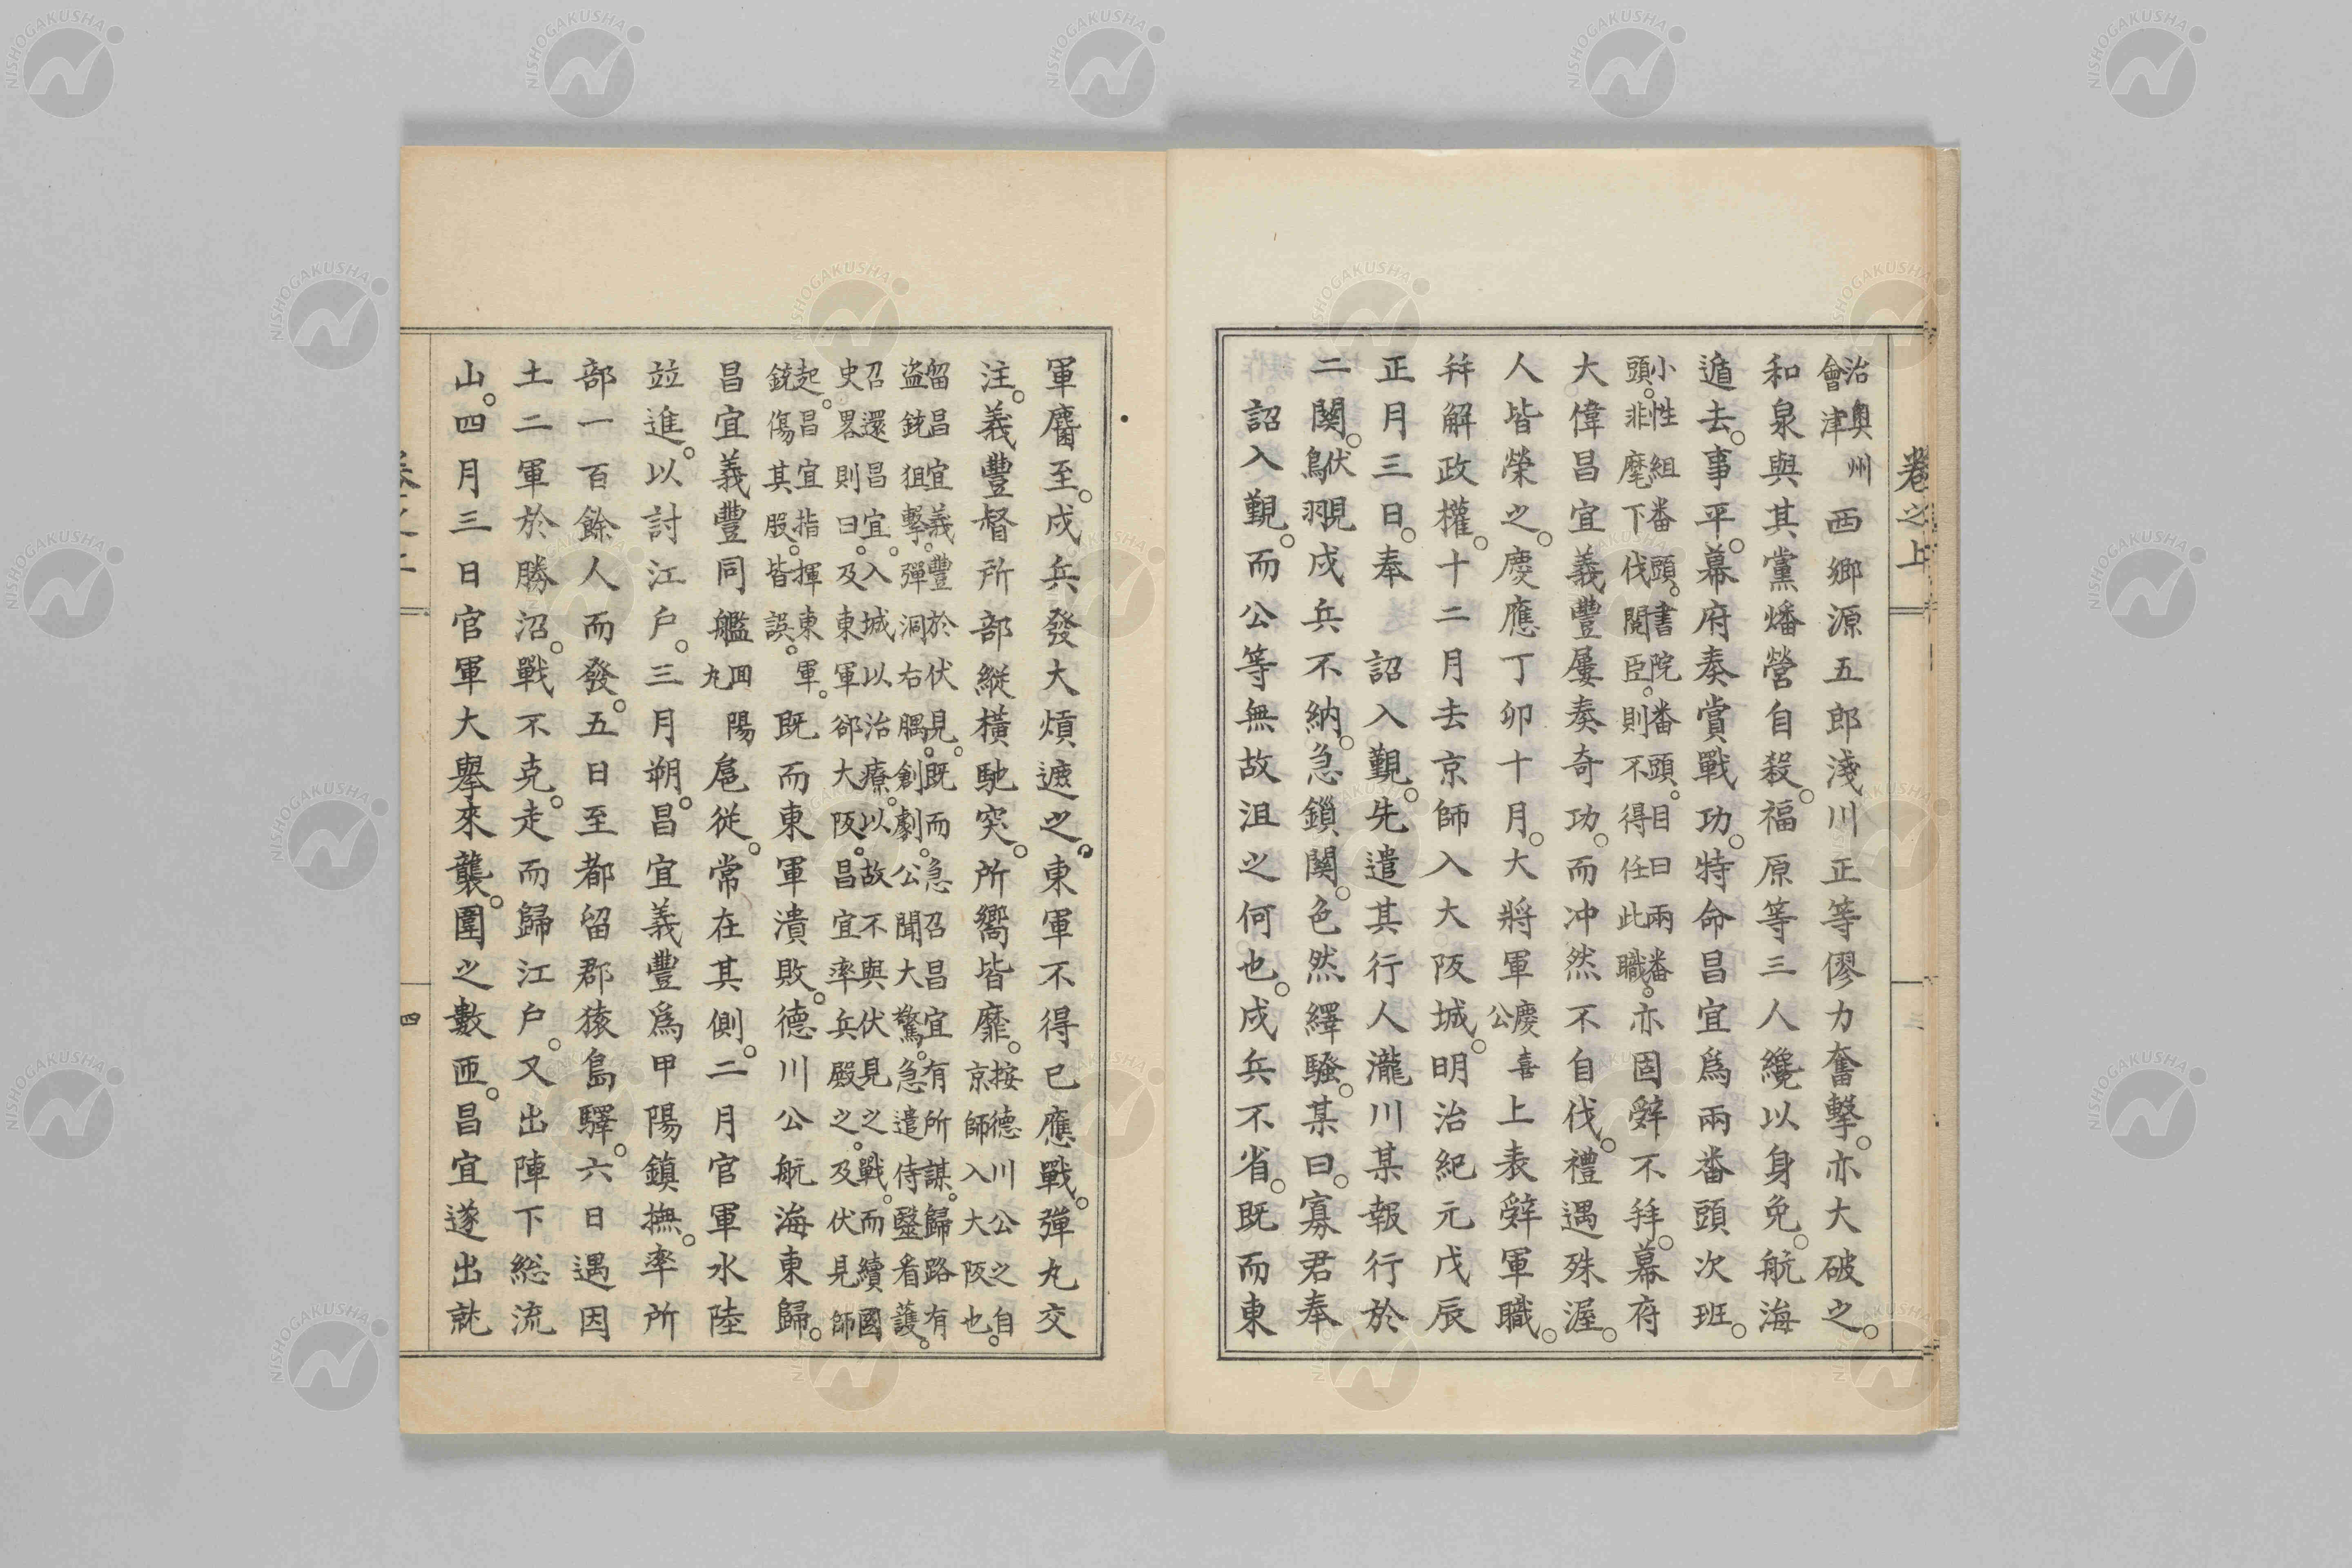 卷之上
三
治奥州
會津
西郷源五郎淺川正等僇力奮擊。亦大破之。
和泉與其黨燔營自殺。福原等三人纔以身免。航海
遁去。事平。幕府奏賞戰功。特命昌宜爲兩番頭次班。
小性組番頭。書院番頭。目曰兩番
頭。非麾下伐閲臣。則不得任此職。
亦固辭不拜。幕府
大偉昌宜義豐屢奏奇功。而冲然不自伐。禮遇殊渥。
人皆榮之。慶應丁卯十月。大將軍慶喜公上表辭軍職。
幷解政權。十二月去京師入大阪城。明治紀元戊辰
正月三日。奉 詔入覲。先遣其行人瀧川某報行於
二関。伏見鳥羽戍兵不納。急鎖関。色然繹騷。某曰。寡君奉
詔入覲。而公等無故沮之何也。戍兵不省。既而東
軍麕至。戍兵發大熕遮之。東軍不得已應戰。彈丸交
注。義豐督所部縱橫馳突。所嚮皆靡。
按德川公之自
京師入大阪也。
留昌宜義豐於伏見。既而急召昌宜有所謀。歸路有
盜銃狙擊。彈洞右髃。創劇。公聞大驚。急遣侍醫看護。
召還昌宜。入城以治療。以故不與伏見之戰。而續國
史畧則曰。及東軍郤大阪。昌宜率兵殿之。及伏見師
起。昌宜指揮東軍。
銃傷其股。皆誤。
既而東軍潰敗。德川公航海東歸。
昌宜義豐同艦回陽丸扈從。常在其側。二月官軍水陸
竝進。以討江戸。三月朔。昌宜義豐爲甲陽鎮撫。率所
部一百餘人而發。五日至都留郡猿島驛。六日遇因
土二軍於勝沼。戰不克。走而歸江戸。又出陣下総流
山。四月三日官軍大擧來襲。圍之數匝。昌宜遂出就
四
NISHOGAKUSHA